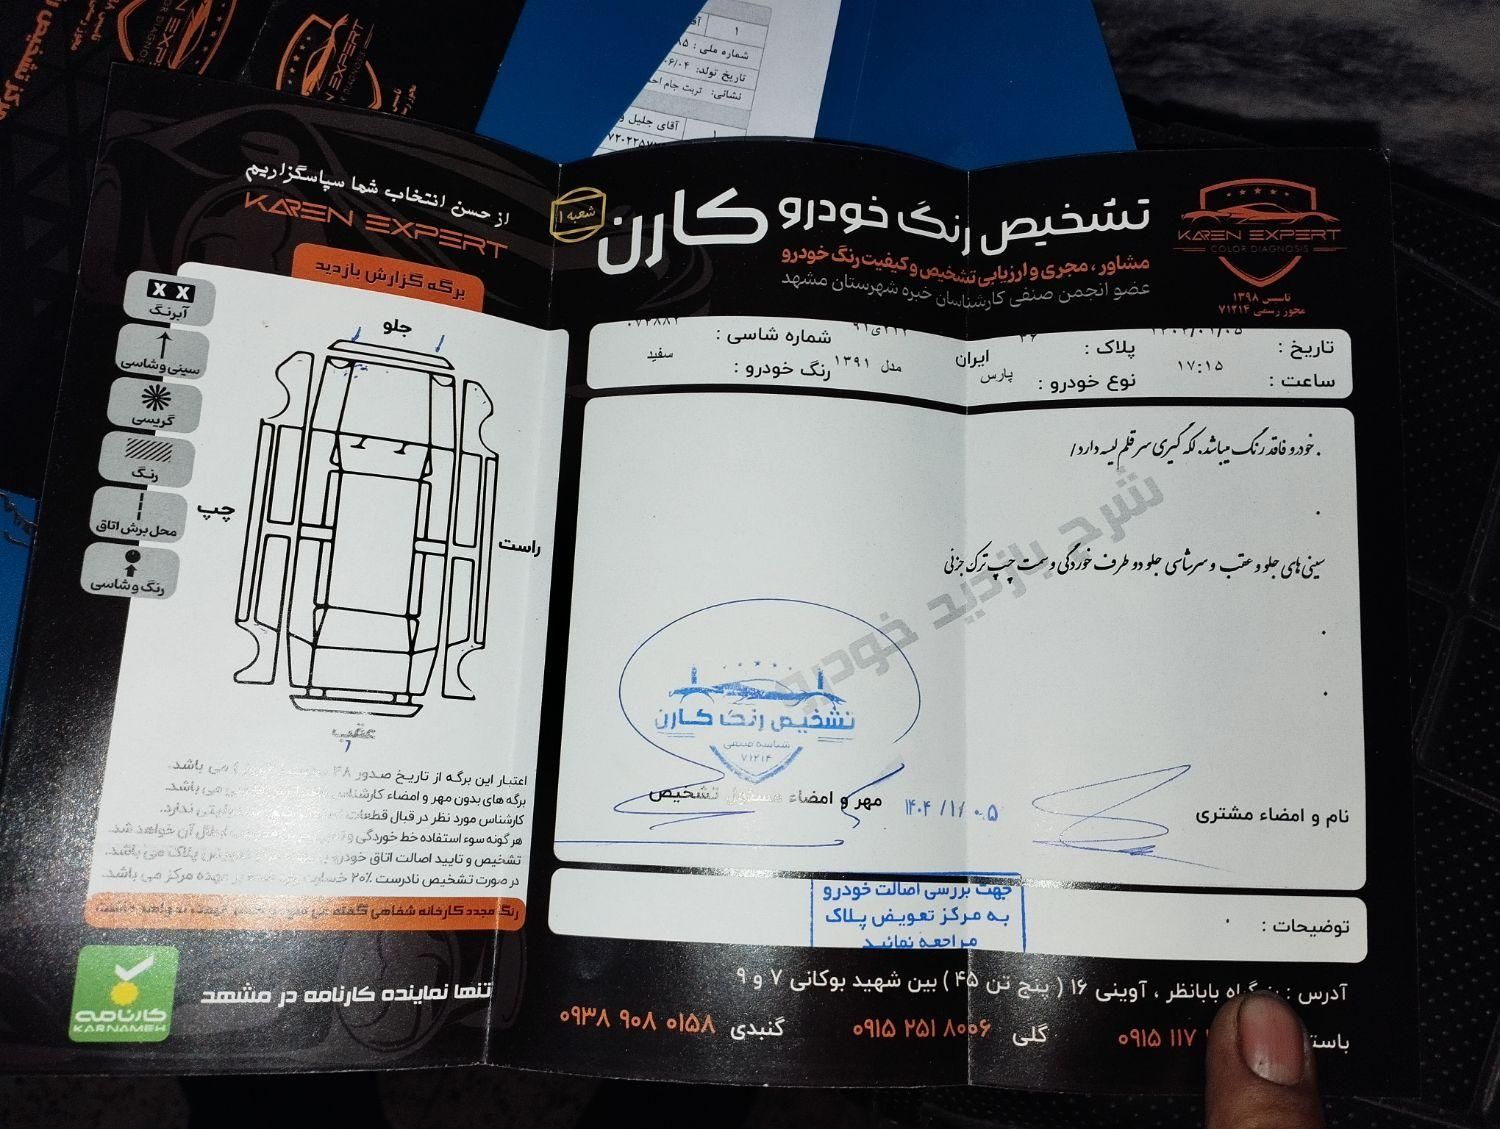 شماره ملی :
تاریخ تولد:
نشانی: تربت جام
آقای جلیل و
KAREN EXPERT
COLOR DIAGNOSIS
تاسیس ۱۳۹۸
مجوز رسمی ۷۱۲۱۴
تشخیص رنگ خودرو کارن
شعبه ۱
مشاور ، مجری و ارزیابی تشخیص و کیفیت رنگ خودرو
عضو انجمن صنفی کارشناسان خبره شهرستان مشهد
تاریخ :
پلاک :
ایران
شماره شاسی :
ساعت : ۱۷:۱۵
نوع خودرو : پارس
مدل ۱۳۹۱
رنگ خودرو : سفید
. خودرو فاقد رنگ میباشد. لکه گیری سر قلم لیسه دارد/
سینی های جلو و عقب و سرشاسی جلو دو طرف خوردگی و سمت چپ ترک جزئی
شرح بازدید خودرو
تشخیص رنگ کارن
شناسه صنفی
۷۱۲۱۴
نام و امضاء مشتری
۱۴۰۴/۱/۰۵
مهر و امضاء مسئول تشخیص
توضیحات :
جهت بررسی اصالت خودرو
به مرکز تعویض پلاک
مراجعه نمائید
آدرس : بابانظر ، آوینی ۱۶ ( پنج تن ۴۵ ) بین شهید بوکانی ۷ و ۹
۰۹۱۵ ۱۱۷
گلی ۰۹۱۵ ۲۵۱ ۸۰۰۶
گنبدی ۰۹۳۸ ۹۰۸ ۰۱۵۸
از حسن انتخاب شما سپاسگزاریم
KAREN EXPERT
برگه گزارش بازدید
X X
آبرنگ
سینی و شاسی
گریسی
رنگ
محل برش اتاق
رنگ و شاسی
جلو
چپ
راست
عقب
اعتبار این برگه از تاریخ صدور ۴۸ می باشد.
برگه های بدون مهر و امضاء کارشناس می باشد.
کارشناس مورد نظر در قبال قطعات ندارد.
هرگونه سوء استفاده خط خوردگی و آن خواهد شد.
تشخیص و تایید اصالت اتاق خودرو پلاک می باشد.
در صورت تشخیص نادرست ۲۰٪ خسارت بر عهده مرکز می باشد.
رنگ مجدد کارخانه شفاهی گفته می شود
کارنامه
KARNAMEH
تنها نماینده کارنامه در مشهد